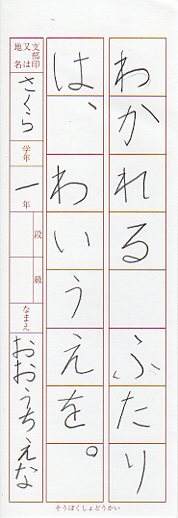 わかれる ふたり
は、わいうえを。
支部印又は地名 さくら 学年 一年 段 級 なまえ おおうちえな
そうほくしょどうかい